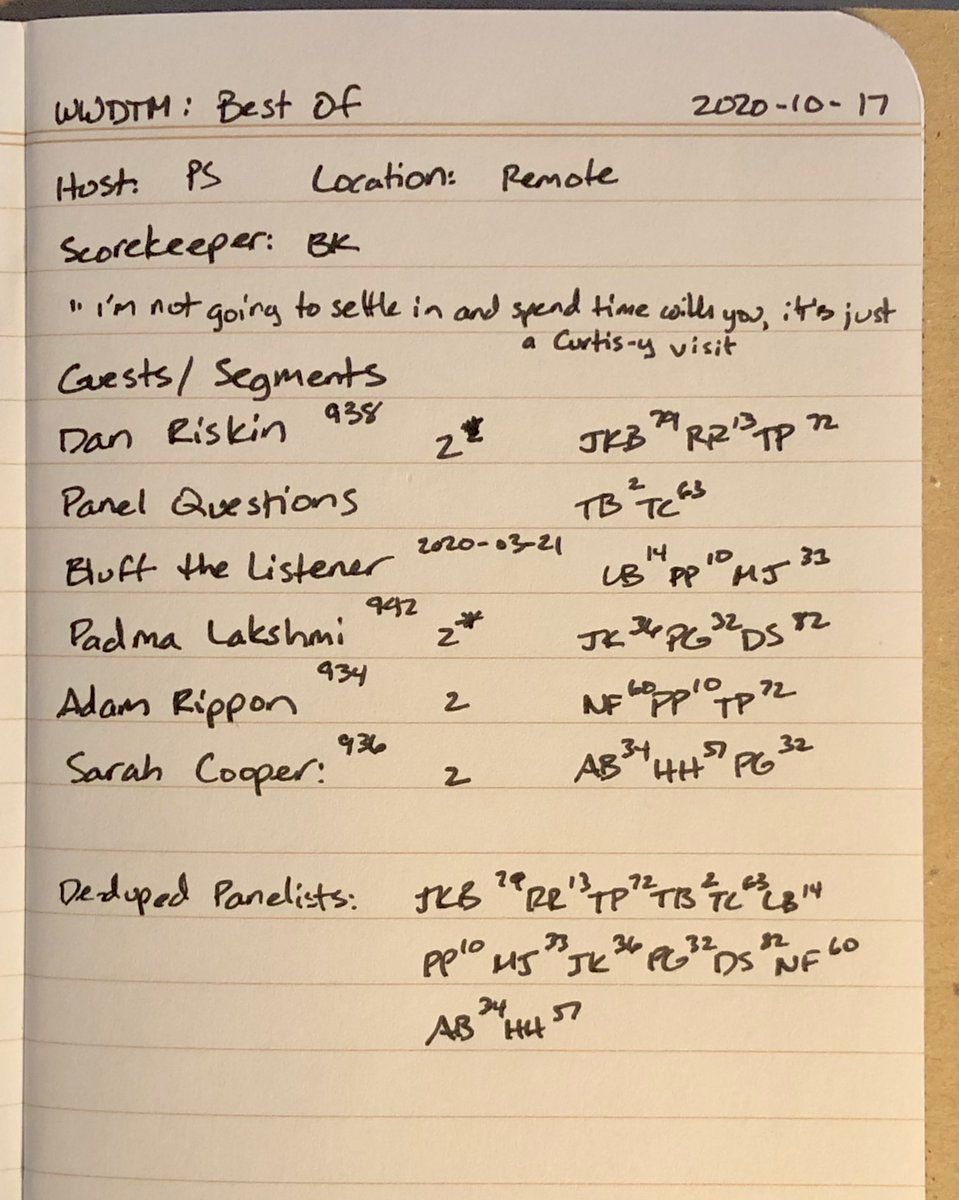 WWDTM: Best Of 2020-10-17
Host: PS Location: Remote
Scorekeeper: BK
"I'm not going to settle in and spend time with you, it's just
a Curtis-y visit
Guests/Segments
Dan Riskin 938 2* JKB 79 RR 13 TP 72
Panel Questions TB 2 TC 63
Bluff the Listener 2020-03-21 LB 14 PP 10 MJ 33
Padma Lakshmi 942 2* JK 36 PG 32 DS 82
Adam Rippon 934 2 NF 60 PP 10 TP 72
Sarah Cooper: 936 2 AB 34 HH 57 PG 32
De-duped Panelists: JKB 79 RR 13 TP 72 TB 2 TC 63 LB 14
PP 10 MJ 33 JK 36 PG 32 DS 82 NF 60
AB 34 HH 57